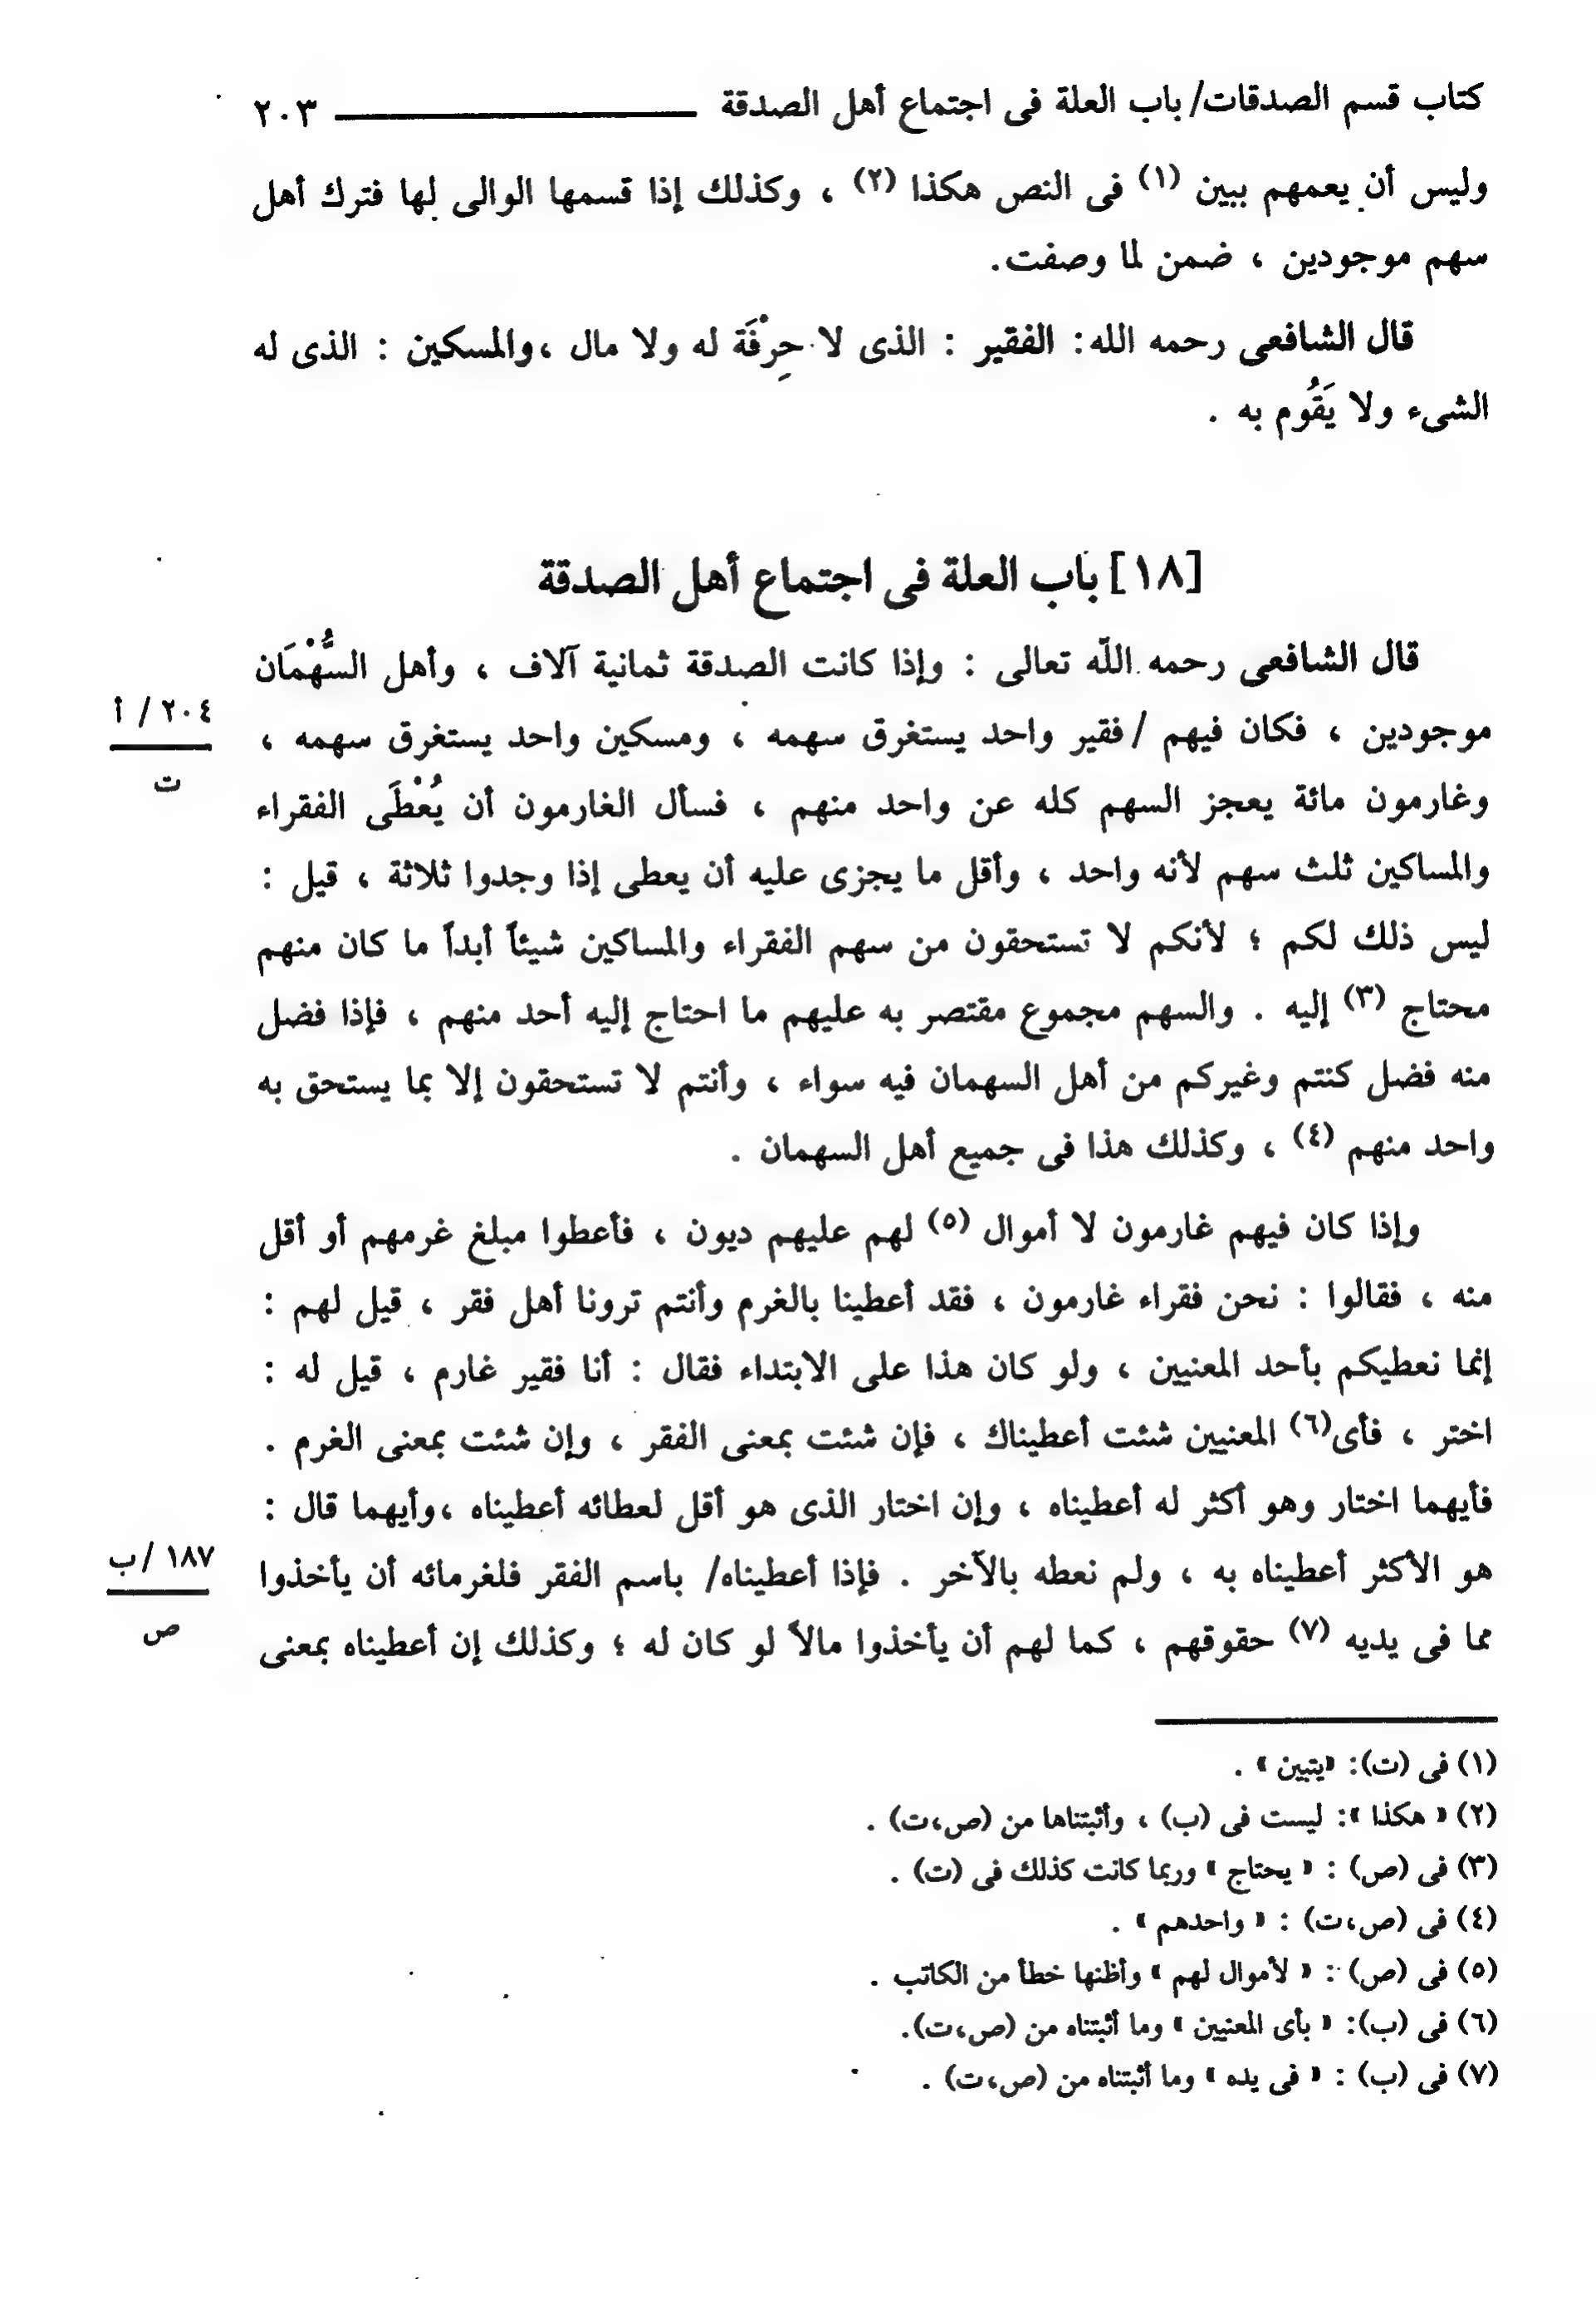 كتاب قسم الصدقات/ باب العلة فى اجتماع أهل الصدقة ـــــــــ ٢٠٣
وليس أن يعمهم ببين (١) فى النص هكذا (٢) ، وكذلك إذا قسمها الوالى لها فترك أهل
سهم موجودين ، ضمن لما وصفت.
قال الشافعى رحمه الله: الفقير : الذى لا حِرْفَة له ولا مال ،والمسكين : الذى له
الشىء ولا يَقُوم به .
[١٨] باب العلة فى اجتماع أهل الصدقة
قال الشافعى رحمه اللّه تعالى : وإذا كانت الصدقة ثمانية آلاف ، وأهل السُّهْمَان
موجودين ، فكان فيهم /فقير واحد يستغرق سهمه ، ومسكين واحد يستغرق سهمه ،
٢٠٤ / أ
ت
وغارمون مائة يعجز السهم كله عن واحد منهم ، فسأل الغارمون أن يُعْطَى الفقراء
والمساكين ثلث سهم لأنه واحد ، وأقل ما يجزى عليه أن يعطى إذا وجدوا ثلاثة ، قيل :
ليس ذلك لكم ؛ لأنكم لا تستحقون من سهم الفقراء والمساكين شيئاً أبداً ما كان منهم
محتاج (٣) إليه . والسهم مجموع مقتصر به عليهم ما احتاج إليه أحد منهم ، فإذا فضل
منه فضل كنتم وغيركم من أهل السهمان فيه سواء ، وأنتم لا تستحقون إلا بما يستحق به
واحد منهم (٤) ، وكذلك هذا فى جميع أهل السهمان .
وإذا كان فيهم غارمون لا أموال (٥) لهم عليهم ديون ، فأعطوا مبلغ غرمهم أو أقل
منه ، فقالوا : نحن فقراء غارمون ، فقد أعطينا بالغرم وأنتم ترونا أهل فقر ، قيل لهم :
إنما نعطيكم بأحد المعنيين ، ولو كان هذا على الابتداء فقال : أنا فقير غارم ، قيل له :
اختر ، فأى(٦) المعنيين شئت أعطيناك ، فإن شئت بمعنى الفقر ، وإن شئت بمعنى الغرم .
فأيهما اختار وهو أكثر له أعطيناه ، وإن اختار الذى هو أقل لعطائه أعطيناه ،وأيهما قال :
هو الأكثر أعطيناه به ، ولم نعطه بالآخر . فإذا أعطيناه/ باسم الفقر فلغرمائه أن يأخذوا
١٨٧ /ب
ص
مما فى يديه (٧) حقوقهم ، كما لهم أن يأخذوا مالاً لو كان له ؛ وكذلك إن أعطيناه بمعنى
(١) فى (ت): «يتبين » .
(٢) « هكذا »: ليست فى (ب) ، وأثبتناها من (ص،ت) .
(٣) فى (ص) : « يحتاج » وربما كانت كذلك فى (ت) .
(٤) فى (ص،ت) : « واحدهم » .
(٥) فى (ص) : « لأموال لهم » وأظنها خطأ من الكاتب .
(٦) فى (ب): « بأى المعنيين » وما أثبتناه من (ص،ت).
(٧) فى (ب) : « فى يده » وما أثبتناه من (ص،ت) .